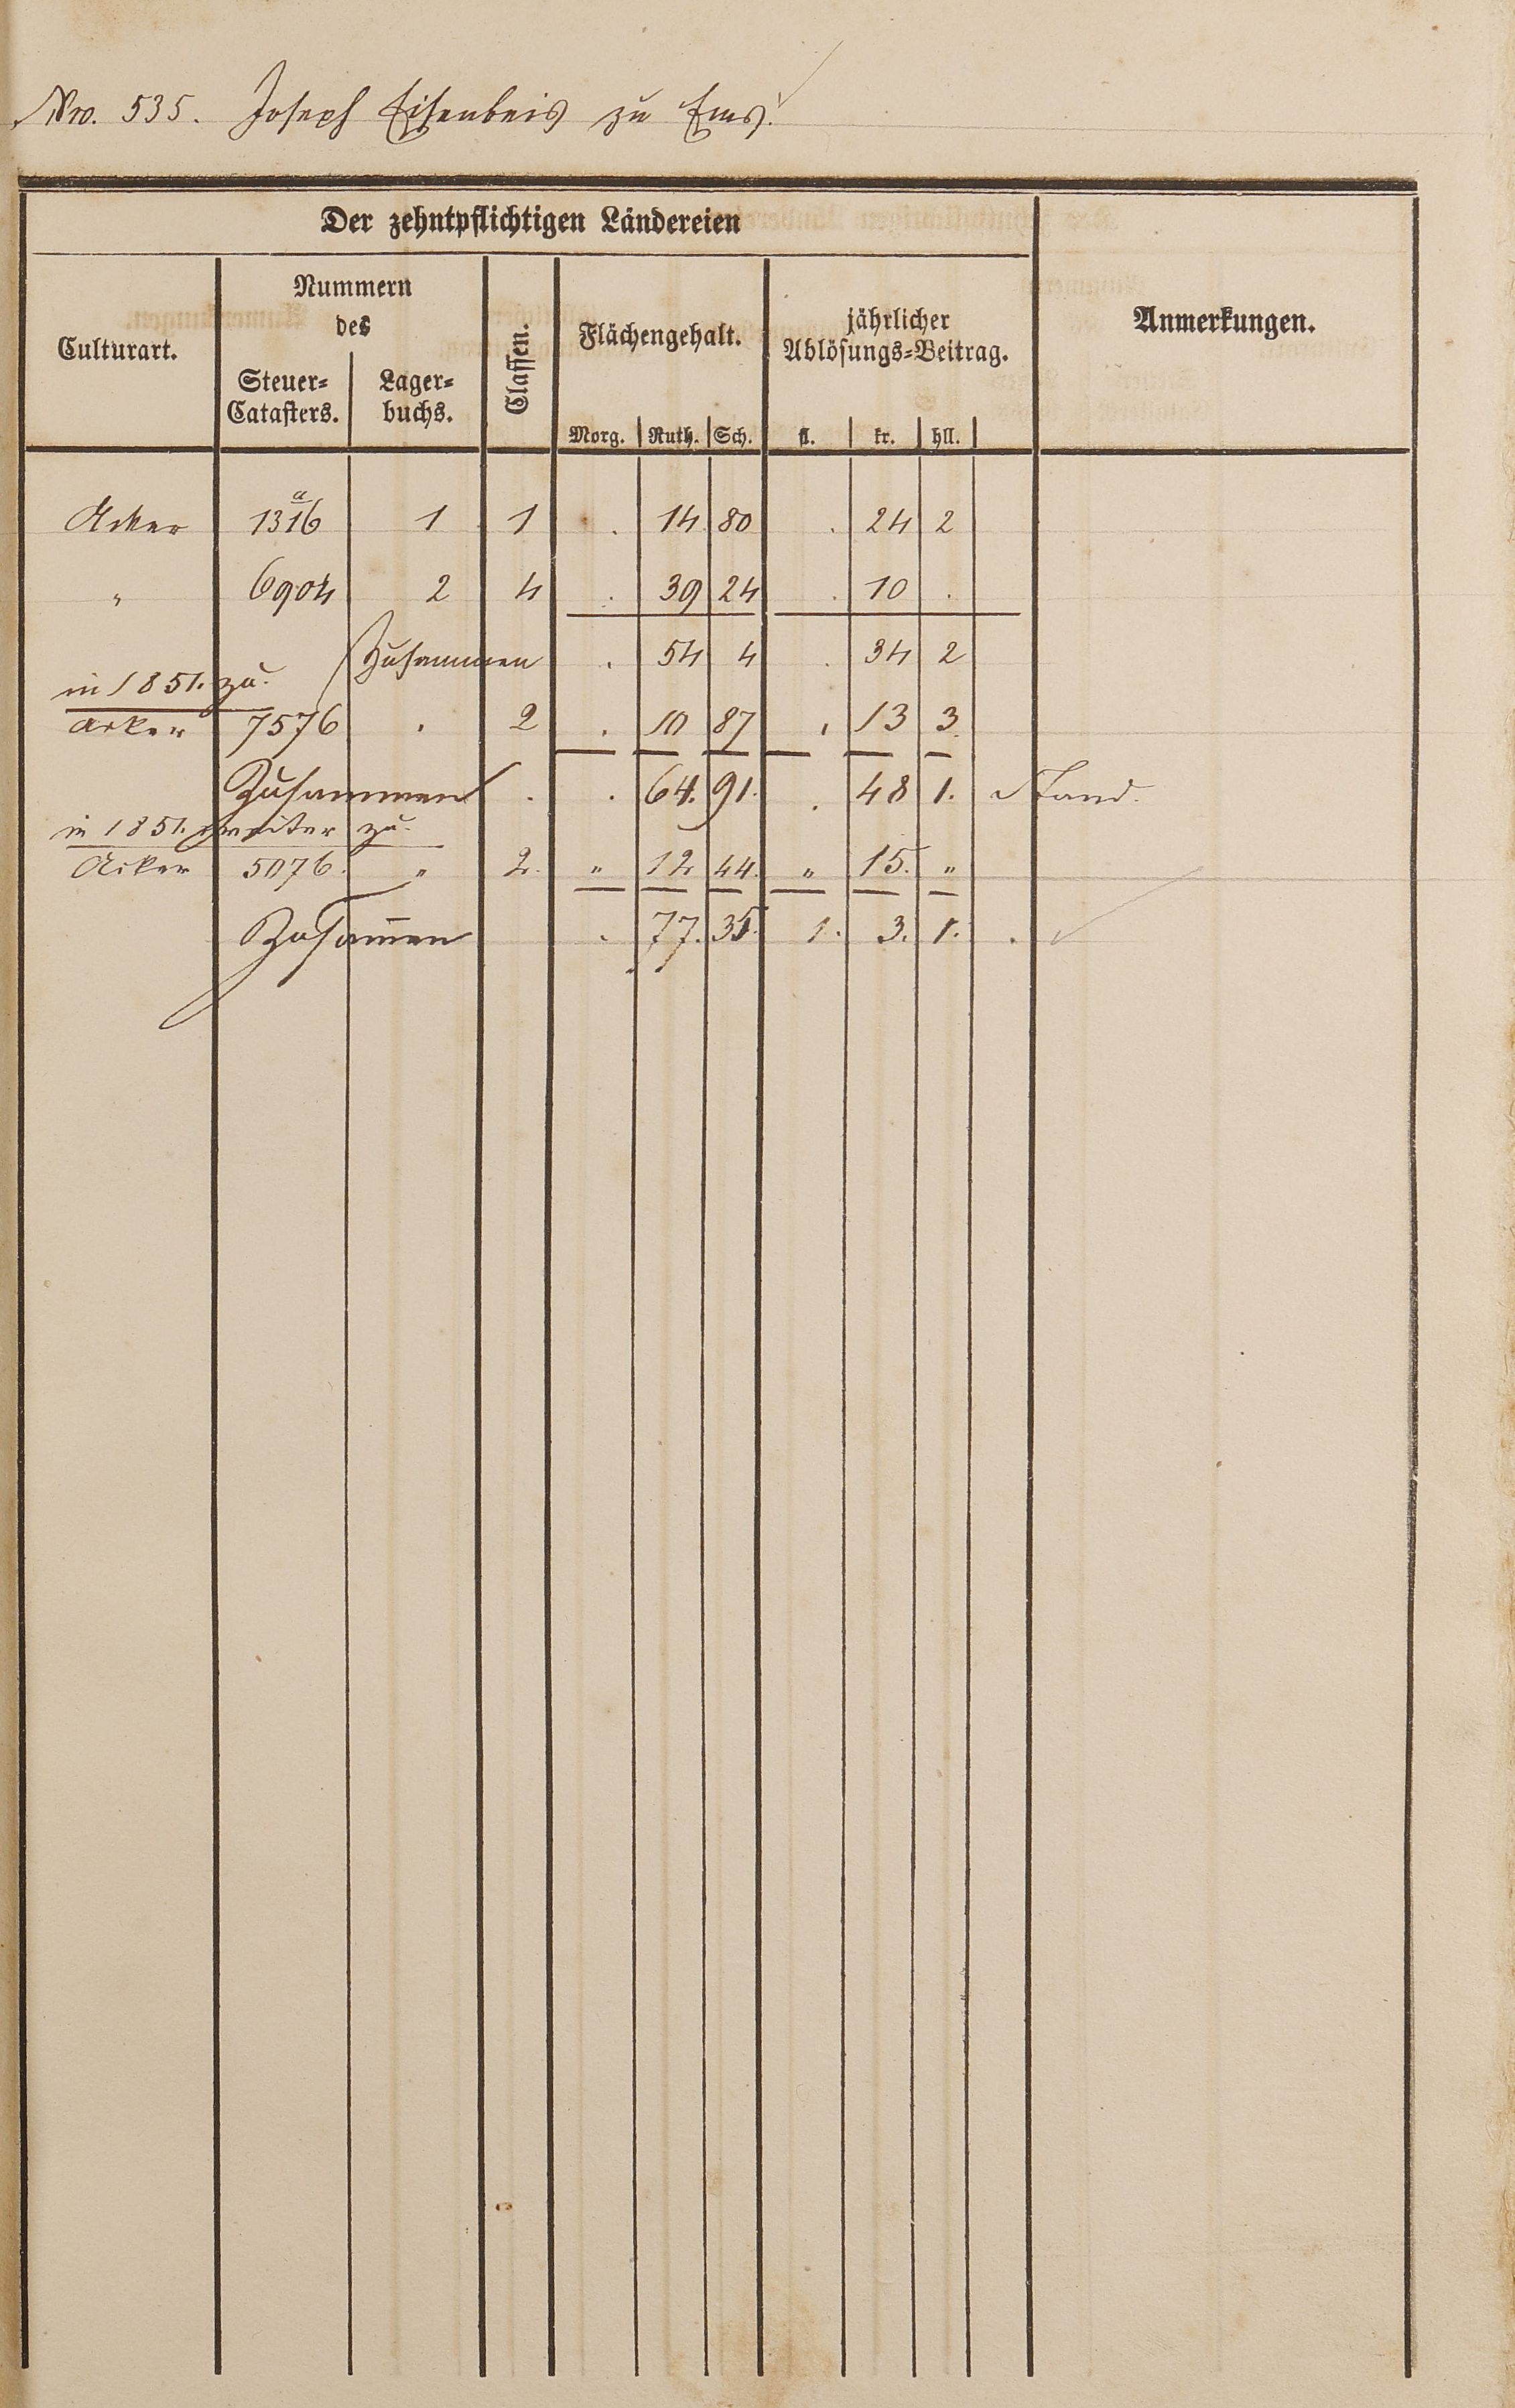 Nro. 535. Joseph Eisenbeis zu Ems.
Der zehntpflichtigen Ländereien
Culturart.
Nummern
des
Steuer-
Catasters.
Lager-
buchs.
Classen.
Flächengehalt.
Morg. Ruth. Sch.
jährlicher
Ablösungs-Beitrag.
fl. kr. hll.
Anmerkungen.
Acker 1316 a 1 1 . 14 80 . 24 2
" 6904 2 4 . 39 24 . 10 .
Zusammen . 54 4 . 34 2
in 1851. zu.
Acker 7576 . 2 . 10 87 . 13 3.
Zusammen . . 64. 91. . 48 1. Stand.
in 1851. weiter zu.
Acker 5076. " 2. " 12 44. " 15. "
Zusam̅en . 77. 35. 1. 3. 1. .